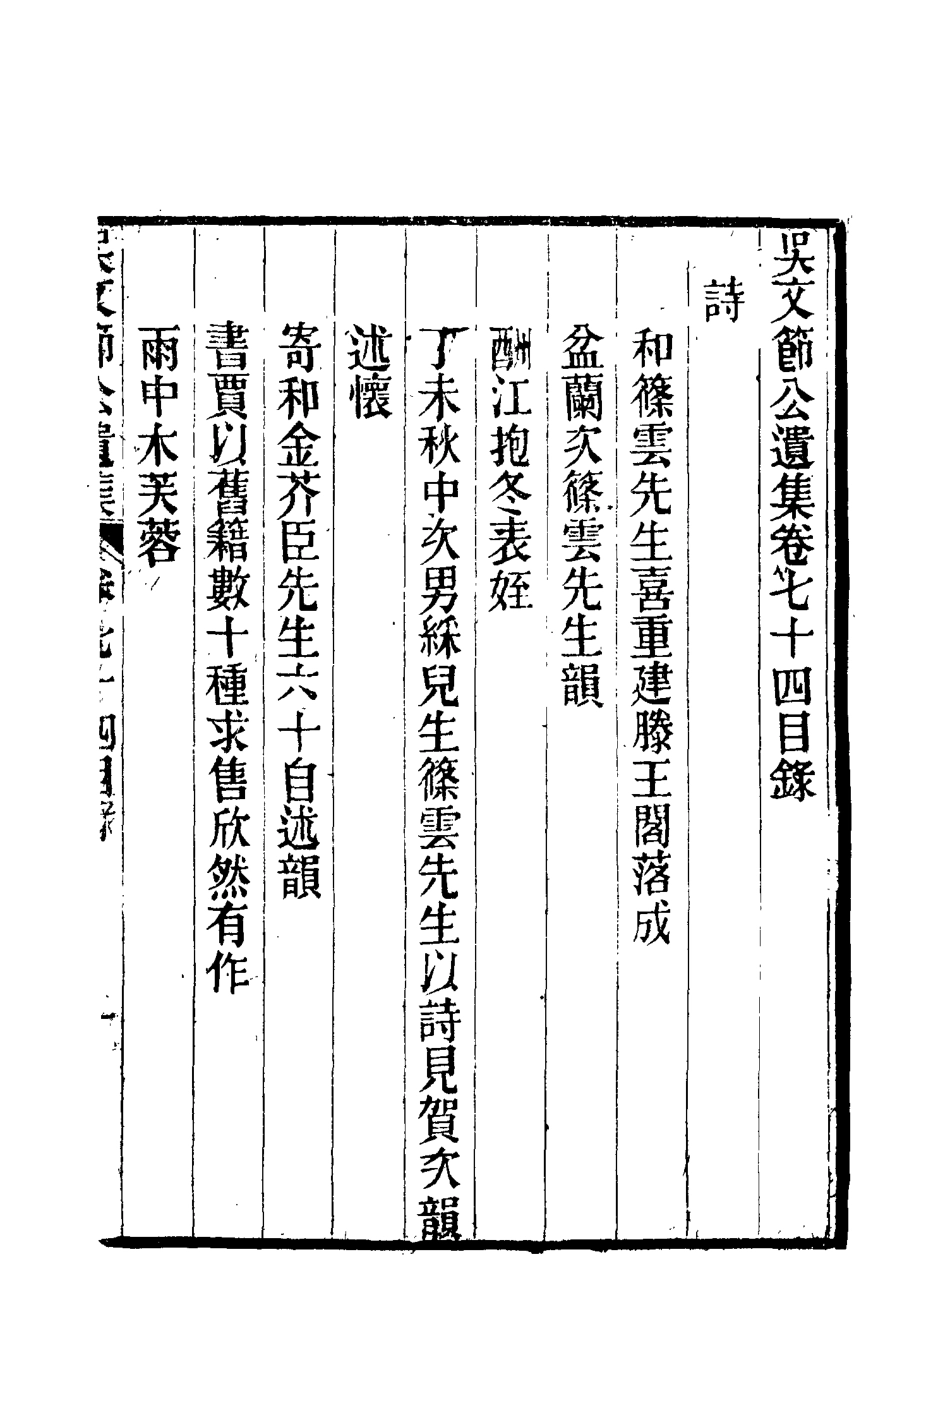 吳文節公遺集卷七十四目錄
詩
和篠雲先生喜重建滕王閣落成
盆蘭次篠雲先生韻
酬江抱冬表姪
丁未秋中次男綵兒生篠雲先生以詩見賀次韻
述懷
寄和金芥臣先生六十自述韻
書賈以舊籍數十種求售欣然有作
雨中木芙蓉
吳文節公遺集 卷七十四目錄 一